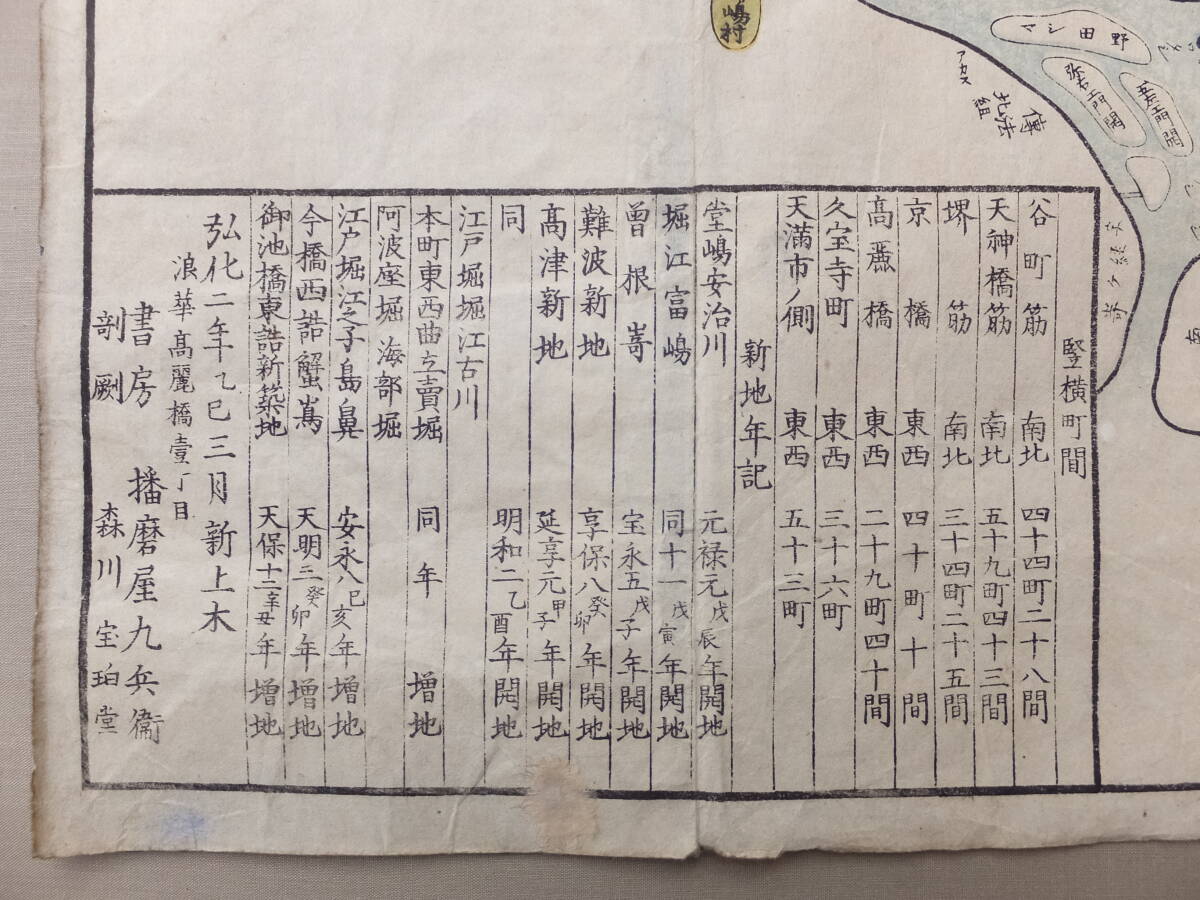 嶋村
野田シマ
アカス
傳法
北組
竪横町間
谷町筋 南北 四十四町二十八間
天神橋筋 南北 五十九町四十三間
堺筋 南北 三十四町二十五間
京橋 東西 四十町十間
高麗橋 東西 二十九町四十間
久宝寺町 東西 三十六町
天満市ノ側 東西 五十三町
新地年記
堂嶋安治川 元禄元戊辰年開地
堀江富嶋 同十一戊寅年開地
曽根嵜 宝永五戊子年開地
難波新地 享保八癸卯年開地
高津新地 延享元甲子年開地
同 明和二乙酉年開地
江戸堀堀江古川
本町東西曲立賣堀 同年増地
阿波座堀海部堀
江户堀江之子島鼻 安永八己亥年増地
今橋西詰蟹嶌 天明三癸卯年増地
御池橋東詰新築地 天保十二辛丑年増地
弘化二年乙巳三月新上木
浪華高麗橋壹丁目
書房 播磨屋九兵衞
剞劂 森川宝珀堂